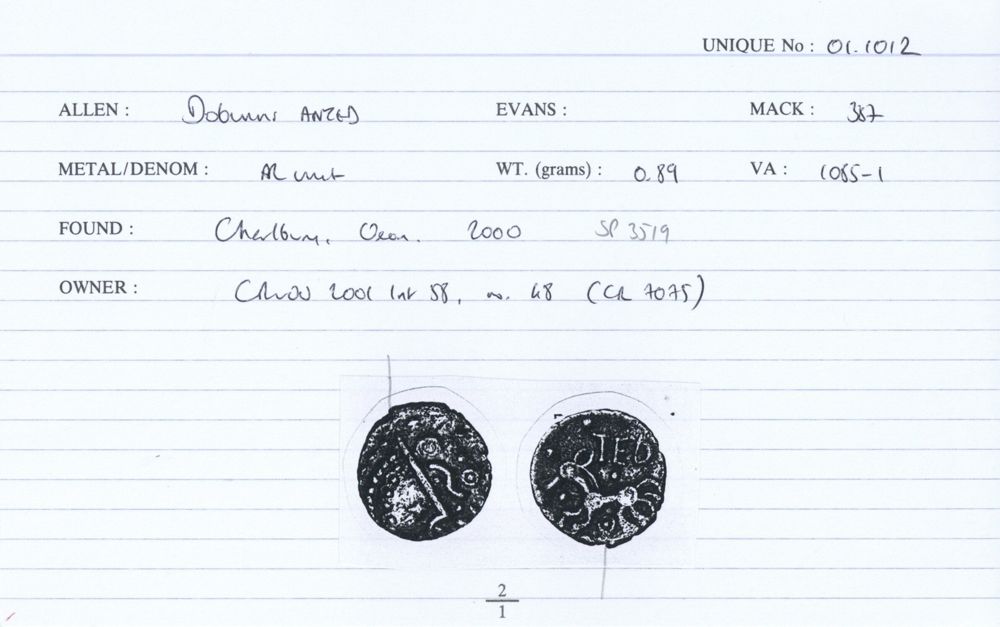 UNIQUE No : 01.1012
ALLEN : Dobunni ANTED EVANS : MACK : 387
METAL/DENOM : AR unit WT. (grams) : 0.89 VA : 1085-1
FOUND : Charlbury, Oxon. 2000 SP 3519
OWNER : 2001 Int 58, no. 48 (CR 7075)
TED
2
1